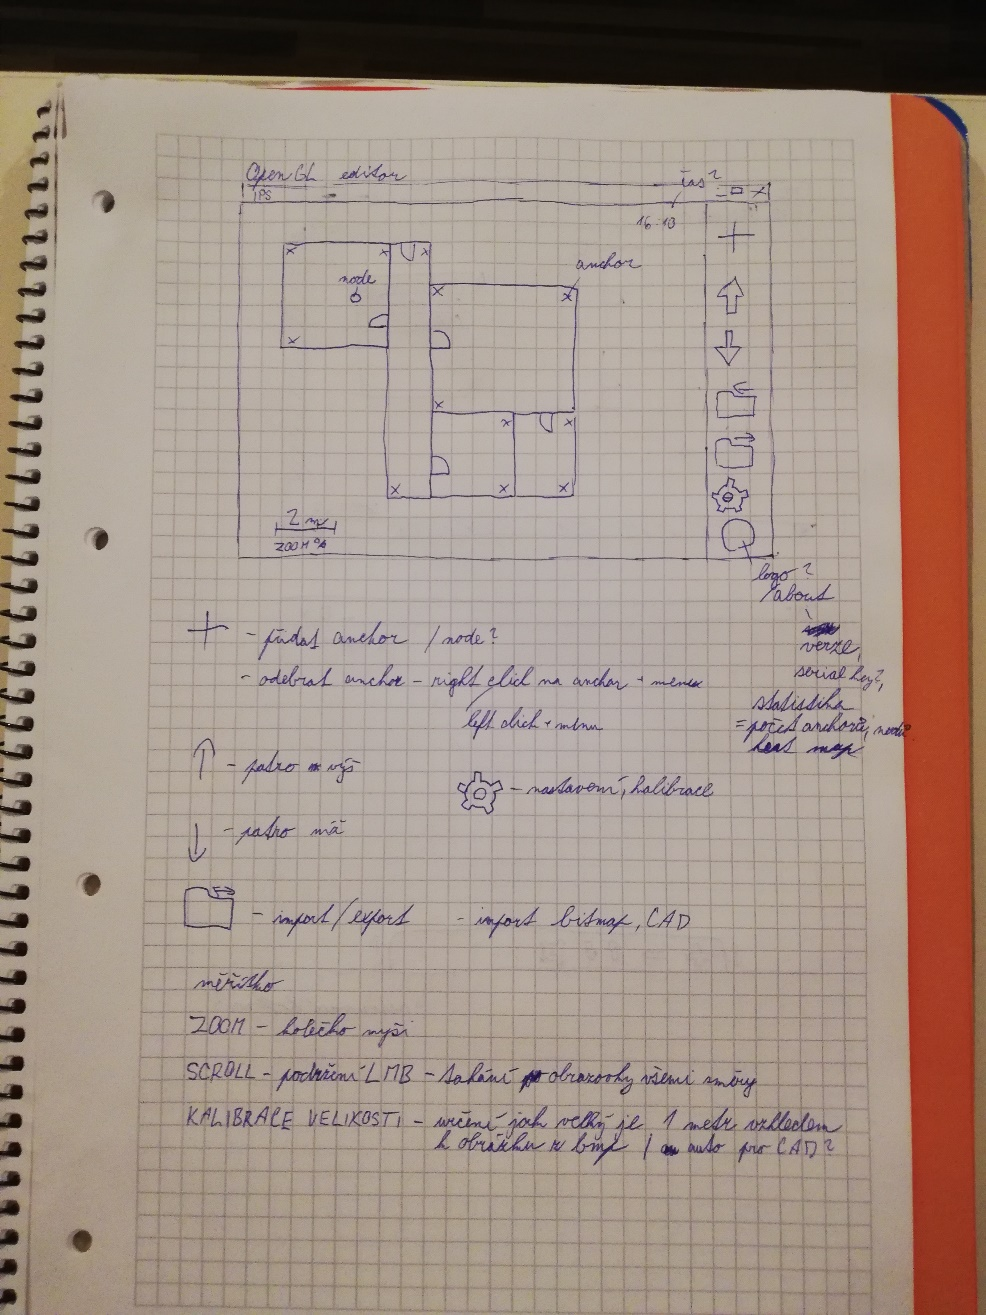 OpenGL editor
IPS
čas?
16:10
anchor
node
2 m
ZOOM %
logo?
/about
verze,
serial key?,
statistika
= počet anchorů, nodů
heat map
+ - přidat anchor / node?
- odebrat anchor - right click na anchor + menu
left click + menu
↑ - patro výš
- nastavení, kalibrace
↓ - patro níž
- import/export - import bitmap, CAD
měřítko
ZOOM - kolečko myši
SCROLL - podržení LMB - tahání obrazovky všemi směry
KALIBRACE VELIKOSTI - určení jak velký je 1 metr vzhledem
k obrázku v bmp / auto pro CAD?